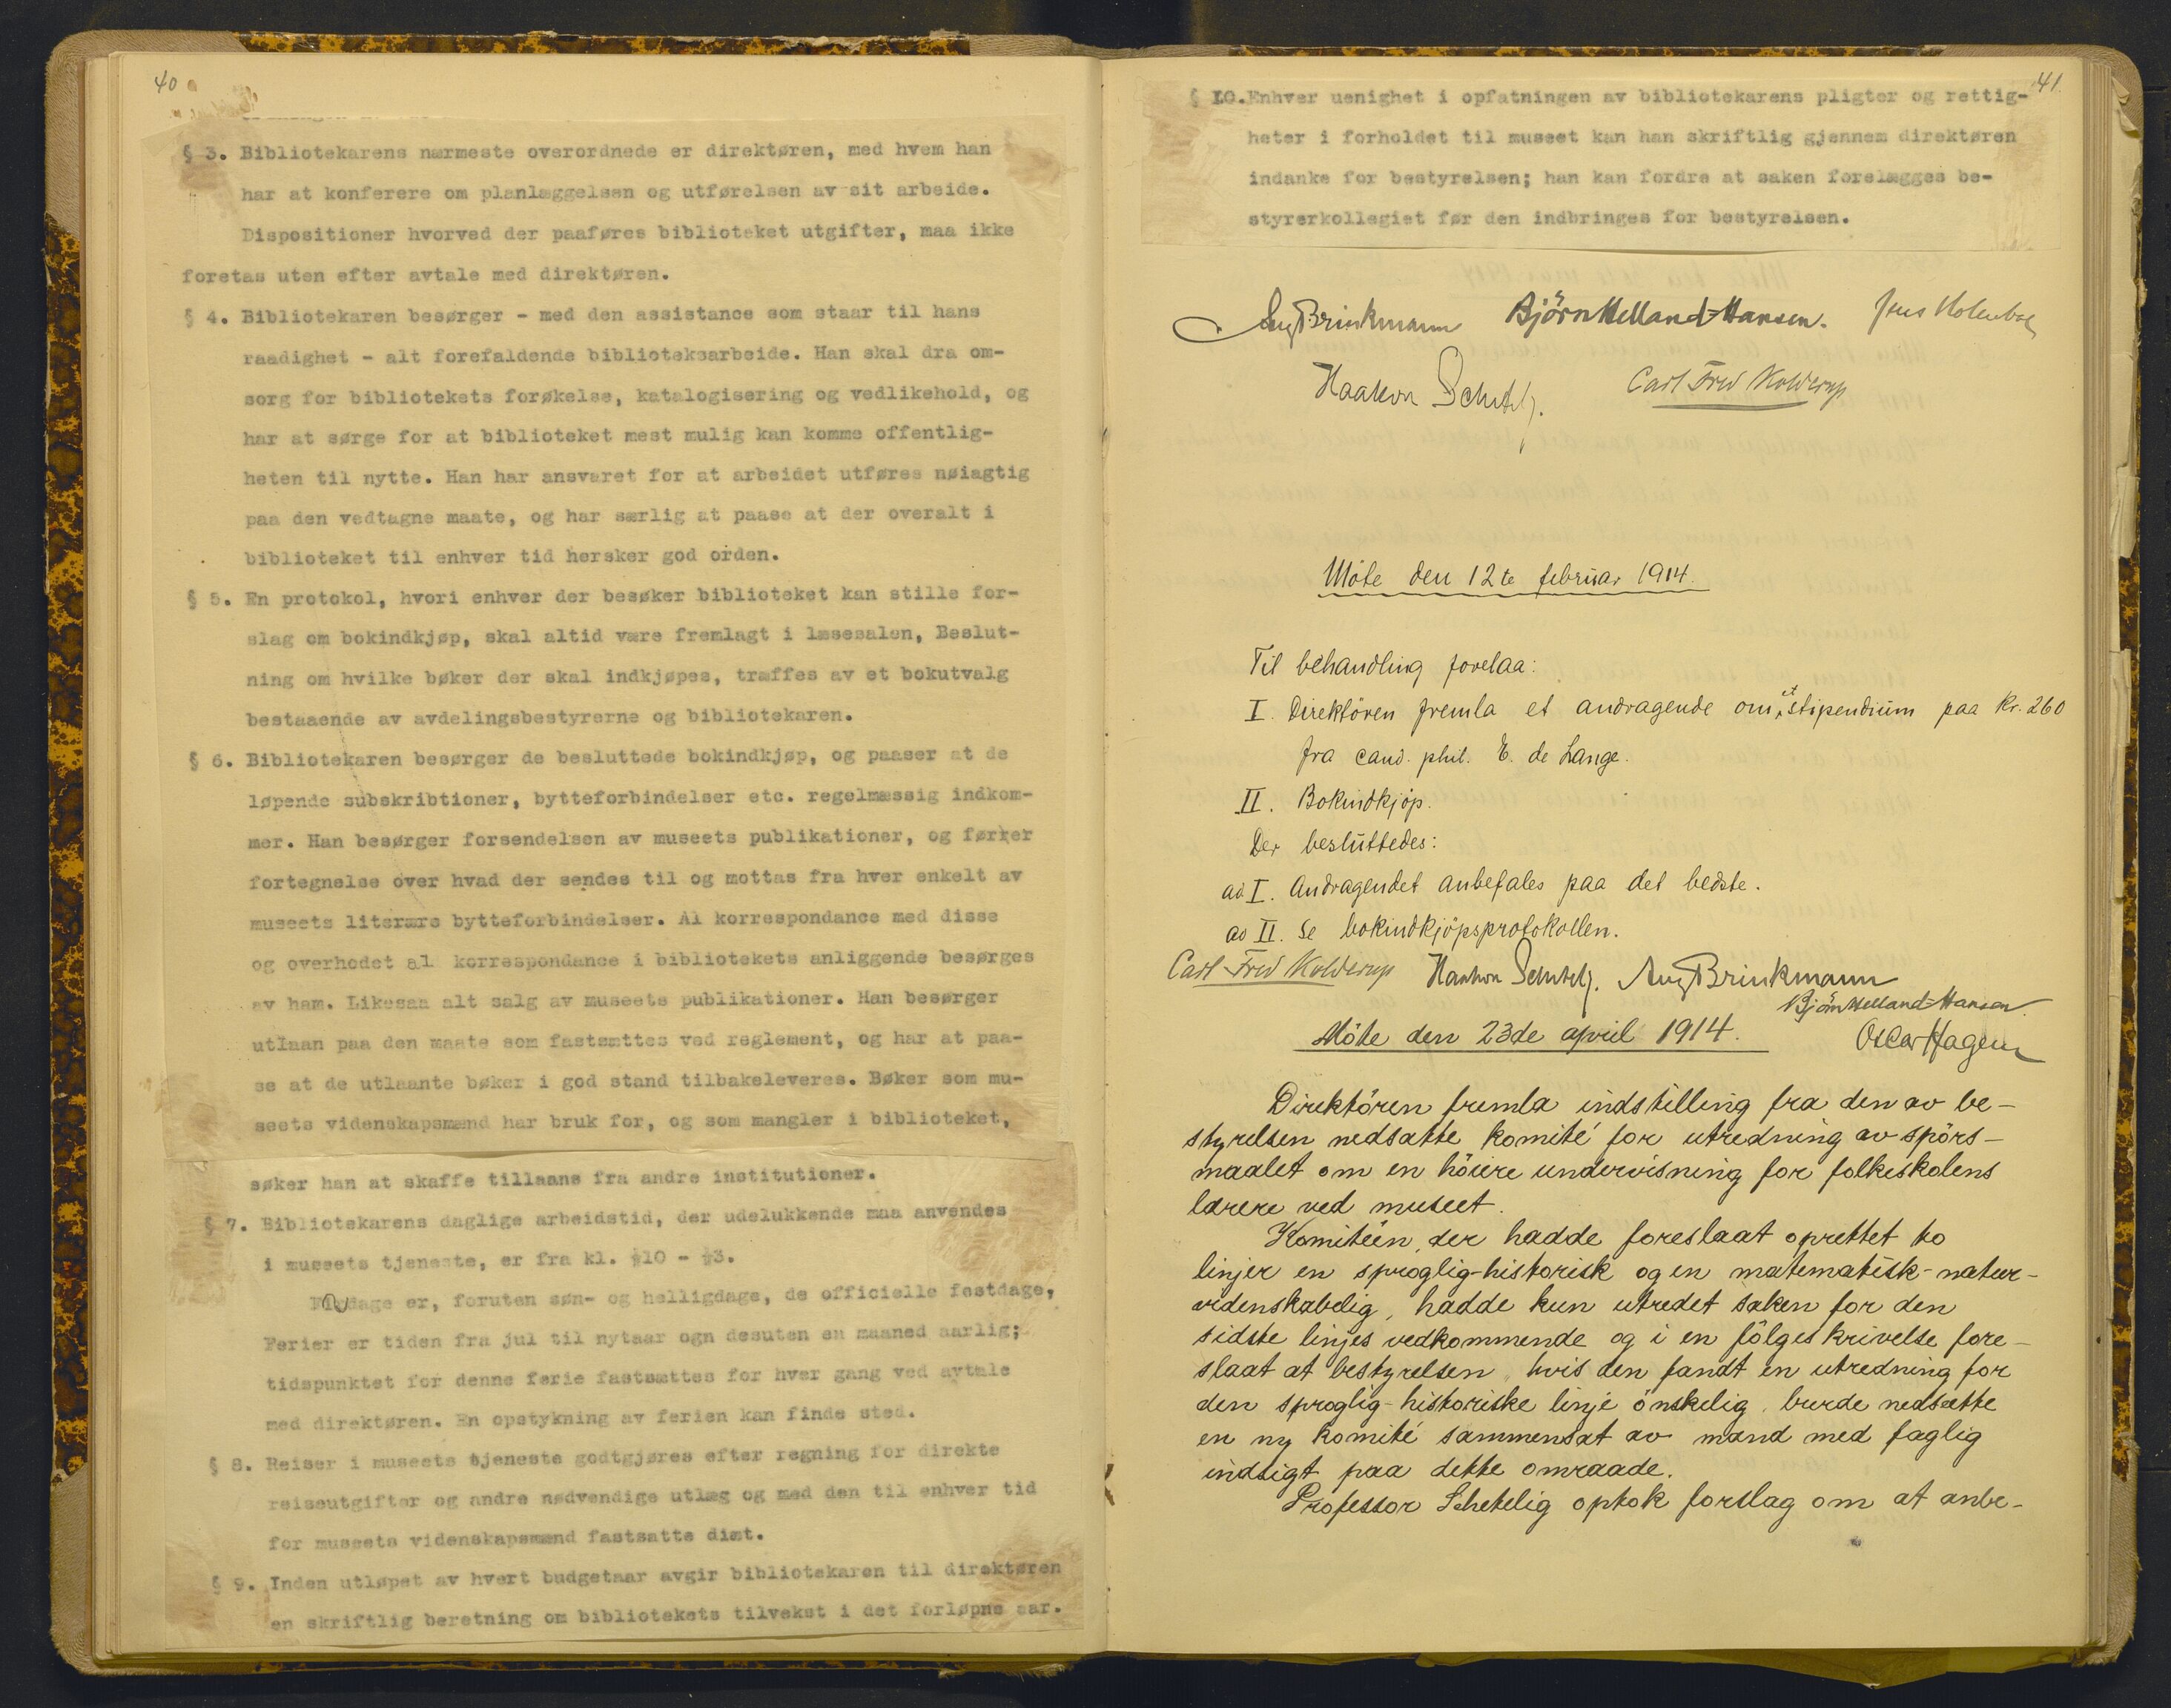 40
§ 3. Bibliotekarens nærmeste overordnede er direktøren, med hvem han
har at konferere om planlæggelsen og utførelsen av sit arbeide.
Dispositioner hvorved der paaføres biblioteket utgifter, maa ikke
foretas uten efter avtale med direktøren.
§ 4. Bibliotekaren besørger - med den assistance som staar til hans
raadighet - alt forefaldende biblioteksarbeide. Han skal dra om-
sorg for bibliotekets forøkelse, katalogisering og vedlikehold, og
har at sørge for at biblioteket mest mulig kan komme offentlig-
heten til nytte. Han har ansvaret for at arbeidet utføres nøiagtig
paa den vedtagne maate, og har særlig at paase at der overalt i
biblioteket til enhver tid hersker god orden.
§ 5. En protokol, hvori enhver der besøker biblioteket kan stille for-
slag om bokindkjøp, skal altid være fremlagt i læsesalen, Beslut-
ning om hvilke bøker der skal indkjøpes, træffes av et bokutvalg
bestaaende av avdelingsbestyrerne og bibliotekaren.
§ 6. Bibliotekaren besørger de besluttede bokindkjøp, og paaser at de
løpende subskribtioner, bytteforbindelser etc. regelmæssig indkom-
mer. Han besørger forsendelsen av museets publikationer, og fører
fortegnelse over hvad der sendes til og mottas fra hver enkelt av
museets literære bytteforbindelser. Al korrespondance med disse
og overhodet al korrespondance i bibliotekets anliggende besørges
av ham. Likesaa alt salg av museets publikationer. Han besørger
utlaan paa den maate som fastsættes ved reglement, og har at paa-
se at de utlaante bøker i god stand tilbakeleveres. Bøker som mu-
seets videnskapsmænd har bruk for, og som mangler i biblioteket,
søker han at skaffe tillaans fra andre institutioner.
§ 7. Bibliotekarens daglige arbeidstid, der udelukkende maa anvendes
i museets tjeneste, er fra kl. ½10 - ½3.
Fridage er, foruten søn- og helligdage, de officielle festdage,
Ferier er tiden fra jul til nytaar ogn desuten en maaned aarlig;
tidspunktet for denne ferie fastsættes for hver gang ved avtale
med direktøren. En opstykning av ferien kan finde sted.
§ 8. Reiser i museets tjeneste godtgjøres efter regning for direkte
reiseutgifter og andre nødvendige utlæg og med den til enhver tid
for museets videnskapsmænd fastsatte diæt.
§ 9. Inden utløpet av hvert budgetaar avgir bibliotekaren til direktøren
en skriftlig beretning om bibliotekets tilvekst i det forløpne aar.
41.
§ 10. Enhver uenighet i opfatningen av bibliotekarens pligter og rettig-
heter i forholdet til museet kan han skriftlig gjennem direktøren
indanke for bestyrelsen; han kan fordre at saken forelægges be-
styrerkollegiet før den indbringes for bestyrelsen.
Aug Brinkmann Björn Helland-Hansen. Jens Holmboe
Haakon Schetelig. Carl Fred Kolderup
Möte den 12te februar 1914.
Til behandling forelaa:
I. Direktören fremla et andragende om et stipendium paa Kr. 260
fra cand. phil. E. de Lange.
II. Bokindkjöp.
Der besluttedes:
ad I. Andragendet anbefales paa det bedste.
ad II. Se bokindkjöpsprotokollen.
Carl Fred Kolderup Haakon Schetelig. Aug Brinkmann
Björn Helland-Hansen.
Möte den 23de april 1914.
Oscar Hagem
Direktören fremla indstilling fra den av be-
styrelsen nedsatte komité for utredning av spörs-
maalet om en höiere undervisning for folkeskolens
lærere ved museet.
Komitéen, der hadde foreslaat oprettet to
linjer en sproglig-historisk og en matematisk-natur-
videnskabelig, hadde kun utredet saken for den
sidste linjes vedkommende og i en fölgeskrivelse fore-
slaat at bestyrelsen, hvis den fandt en utredning for
den sproglig-historiske linje önskelig, burde nedsætte
en ny komité sammensat av mænd med faglig
indsigt paa dette omraade.
Professor Schetelig optok forslag om at anbe-